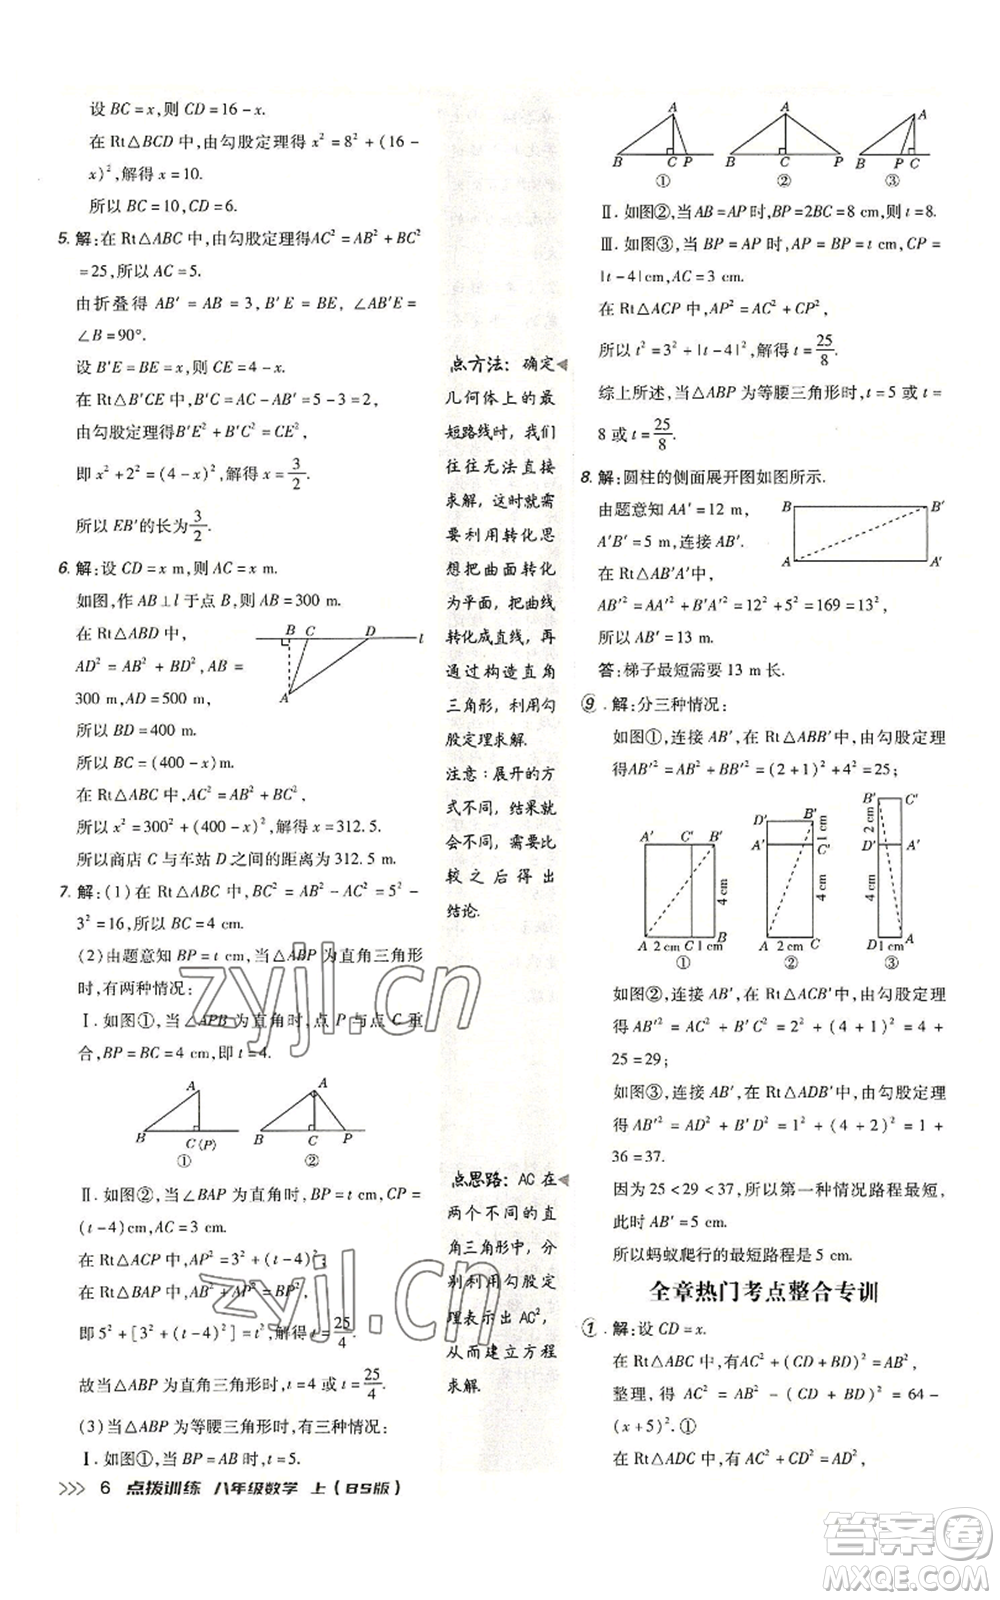 设 BC = x,则 CD = 16 - x.
在 Rt△BCD 中,由勾股定理得 x² = 8² + (16 -
x)²,解得 x = 10.
所以 BC = 10, CD = 6.
5. 解:在 Rt△ABC 中,由勾股定理得AC² = AB² + BC²
= 25,所以 AC = 5.
由折叠得 AB′ = AB = 3, B′E = BE, ∠AB′E =
∠B = 90°.
设 B′E = BE = x,则 CE = 4 - x.
在 Rt△B′CE 中, B′C = AC - AB′ = 5 - 3 = 2,
由勾股定理得B′E² + B′C² = CE²,
即 x² + 2² = (4 - x)²,解得 x = 3/2.
所以 EB′的长为 3/2.
6. 解:设 CD = x m,则 AC = x m.
如图,作 AB⊥l 于点 B,则 AB = 300 m.
在 Rt△ABD 中,
AD² = AB² + BD², AB =
300 m, AD = 500 m,
B C D l
A
所以 BD = 400 m.
所以 BC = (400 - x) m.
在 Rt△ABC 中, AC² = AB² + BC²,
所以 x² = 300² + (400 - x)²,解得 x = 312.5.
所以商店 C 与车站 D 之间的距离为 312.5 m.
7. 解:(1)在 Rt△ABC 中, BC² = AB² - AC² = 5² -
3² = 16,所以 BC = 4 cm.
(2)由题意知 BP = t cm,当△ABP 为直角三角形
时,有两种情况:
Ⅰ. 如图①,当∠APB 为直角时,点 P 与点 C 重
合, BP = BC = 4 cm,即 t = 4.
A A
B C(P) B C P
① ②
Ⅱ. 如图②,当∠BAP 为直角时, BP = t cm, CP =
(t - 4) cm, AC = 3 cm.
在 Rt△ACP 中, AP² = 3² + (t - 4)²,
在 Rt△BAP 中, AB² + AP² = BP²,
即 5² + [3² + (t - 4)²] = t²,解得 t = 25/4.
故当△ABP 为直角三角形时, t = 4 或 t = 25/4.
(3)当△ABP 为等腰三角形时,有三种情况:
Ⅰ. 如图①,当 BP = AB 时, t = 5.
点方法:确定
几何体上的最
短路线时,我们
往往无法直接
求解,这时就需
要利用转化思
想把曲面转化
为平面,把曲线
转化成直线,再
通过构造直角
三角形,利用勾
股定理求解.
注意:展开的方
式不同,结果就
会不同,需要比
较之后得出
结论.
点思路:AC 在
两个不同的直
角三角形中,分
别利用勾股定
理表示出 AC²,
从而建立方程
求解.
A A A
B C P B C P B P C
① ② ③
Ⅱ. 如图②,当 AB = AP 时, BP = 2BC = 8 cm,则 t = 8.
Ⅲ. 如图③,当 BP = AP 时, AP = BP = t cm, CP =
|t - 4| cm, AC = 3 cm.
在 Rt△ACP 中, AP² = AC² + CP²,
所以 t² = 3² + |t - 4|²,解得 t = 25/8.
综上所述,当△ABP 为等腰三角形时, t = 5 或 t =
8 或 t = 25/8.
8. 解:圆柱的侧面展开图如图所示.
由题意知 AA′ = 12 m,
A′B′ = 5 m,连接 AB′.
在 Rt△AB′A′中,
B B′
A A′
AB′² = AA′² + B′A′² = 12² + 5² = 169 = 13²,
所以 AB′ = 13 m.
答:梯子最短需要 13 m 长.
9. 解:分三种情况:
如图①,连接 AB′,在 Rt△ABB′中,由勾股定理
得AB′² = AB² + BB′² = (2 + 1)² + 4² = 25;
A′ C′ B′ 4 cm A 2 cm C 1 cm B ①
D′ B′ 1 cm A′ C′ 4 cm A 2 cm C ②
B′ C′ 2 cm D′ A′ 4 cm D 1 cm A ③
如图②,连接 AB′,在 Rt△ACB′中,由勾股定理
得 AB′² = AC² + B′C² = 2² + (4 + 1)² = 4 +
25 = 29;
如图③,连接 AB′,在 Rt△ADB′中,由勾股定理
得 AB′² = AD² + B′D² = 1² + (4 + 2)² = 1 +
36 = 37.
因为 25 < 29 < 37,所以第一种情况路程最短,
此时 AB′ = 5 cm.
所以蚂蚁爬行的最短路程是 5 cm.
全章热门考点整合专训
1. 解:设 CD = x.
在 Rt△ABC 中,有AC² + (CD + BD)² = AB²,
整理,得 AC² = AB² - (CD + BD)² = 64 -
(x + 5)². ①
在 Rt△ACD 中,有 AC² + CD² = AD²,
>>> 6 点拨训练 八年级数学 上(BS版)
zyjl.cn
zyjl.cn
答案卷
MXQE.COM